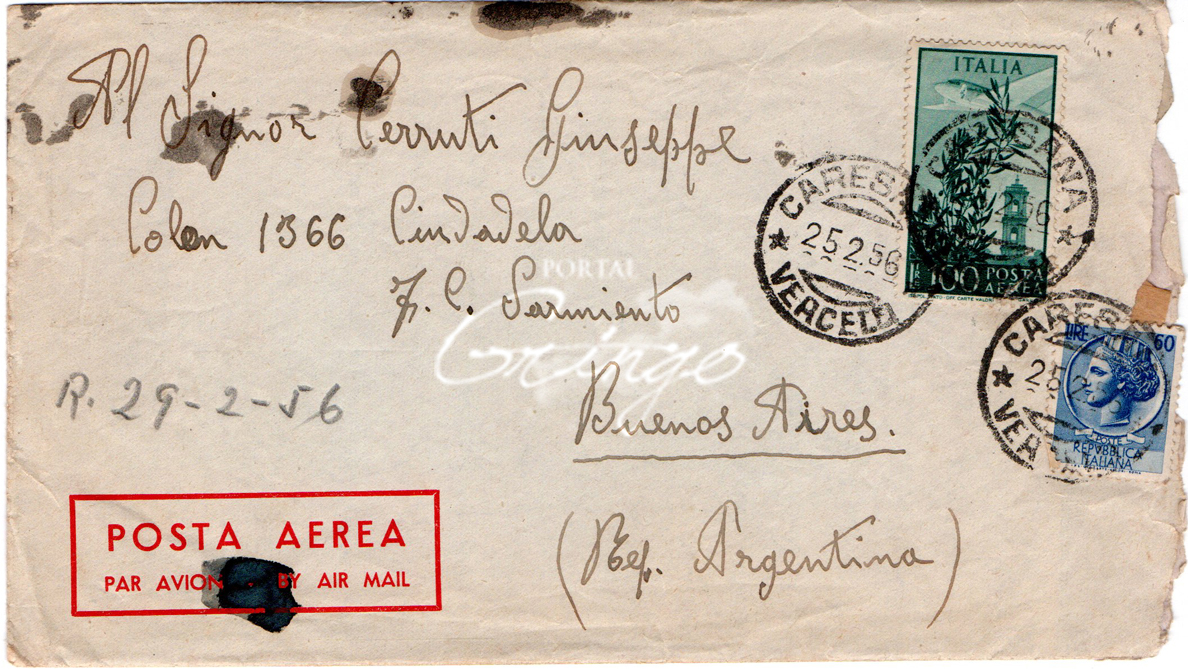 Al Signor Cerruti Giuseppe
Colon 1366 Ciudadela
F. C. Sarmiento
Buenos Aires.
(Rep. Argentina)
R. 29-2-56
POSTA AEREA
PAR AVION - BY AIR MAIL
ITALIA
LIRE 100 POSTA AEREA
CARESANA
25.2.56
VERCELLI
CARESANA
2.56
LIRE 60
POSTE
REPVBBLICA
ITALIANA
CARESANA
25.2.56
VER
PORTAL
Gringo